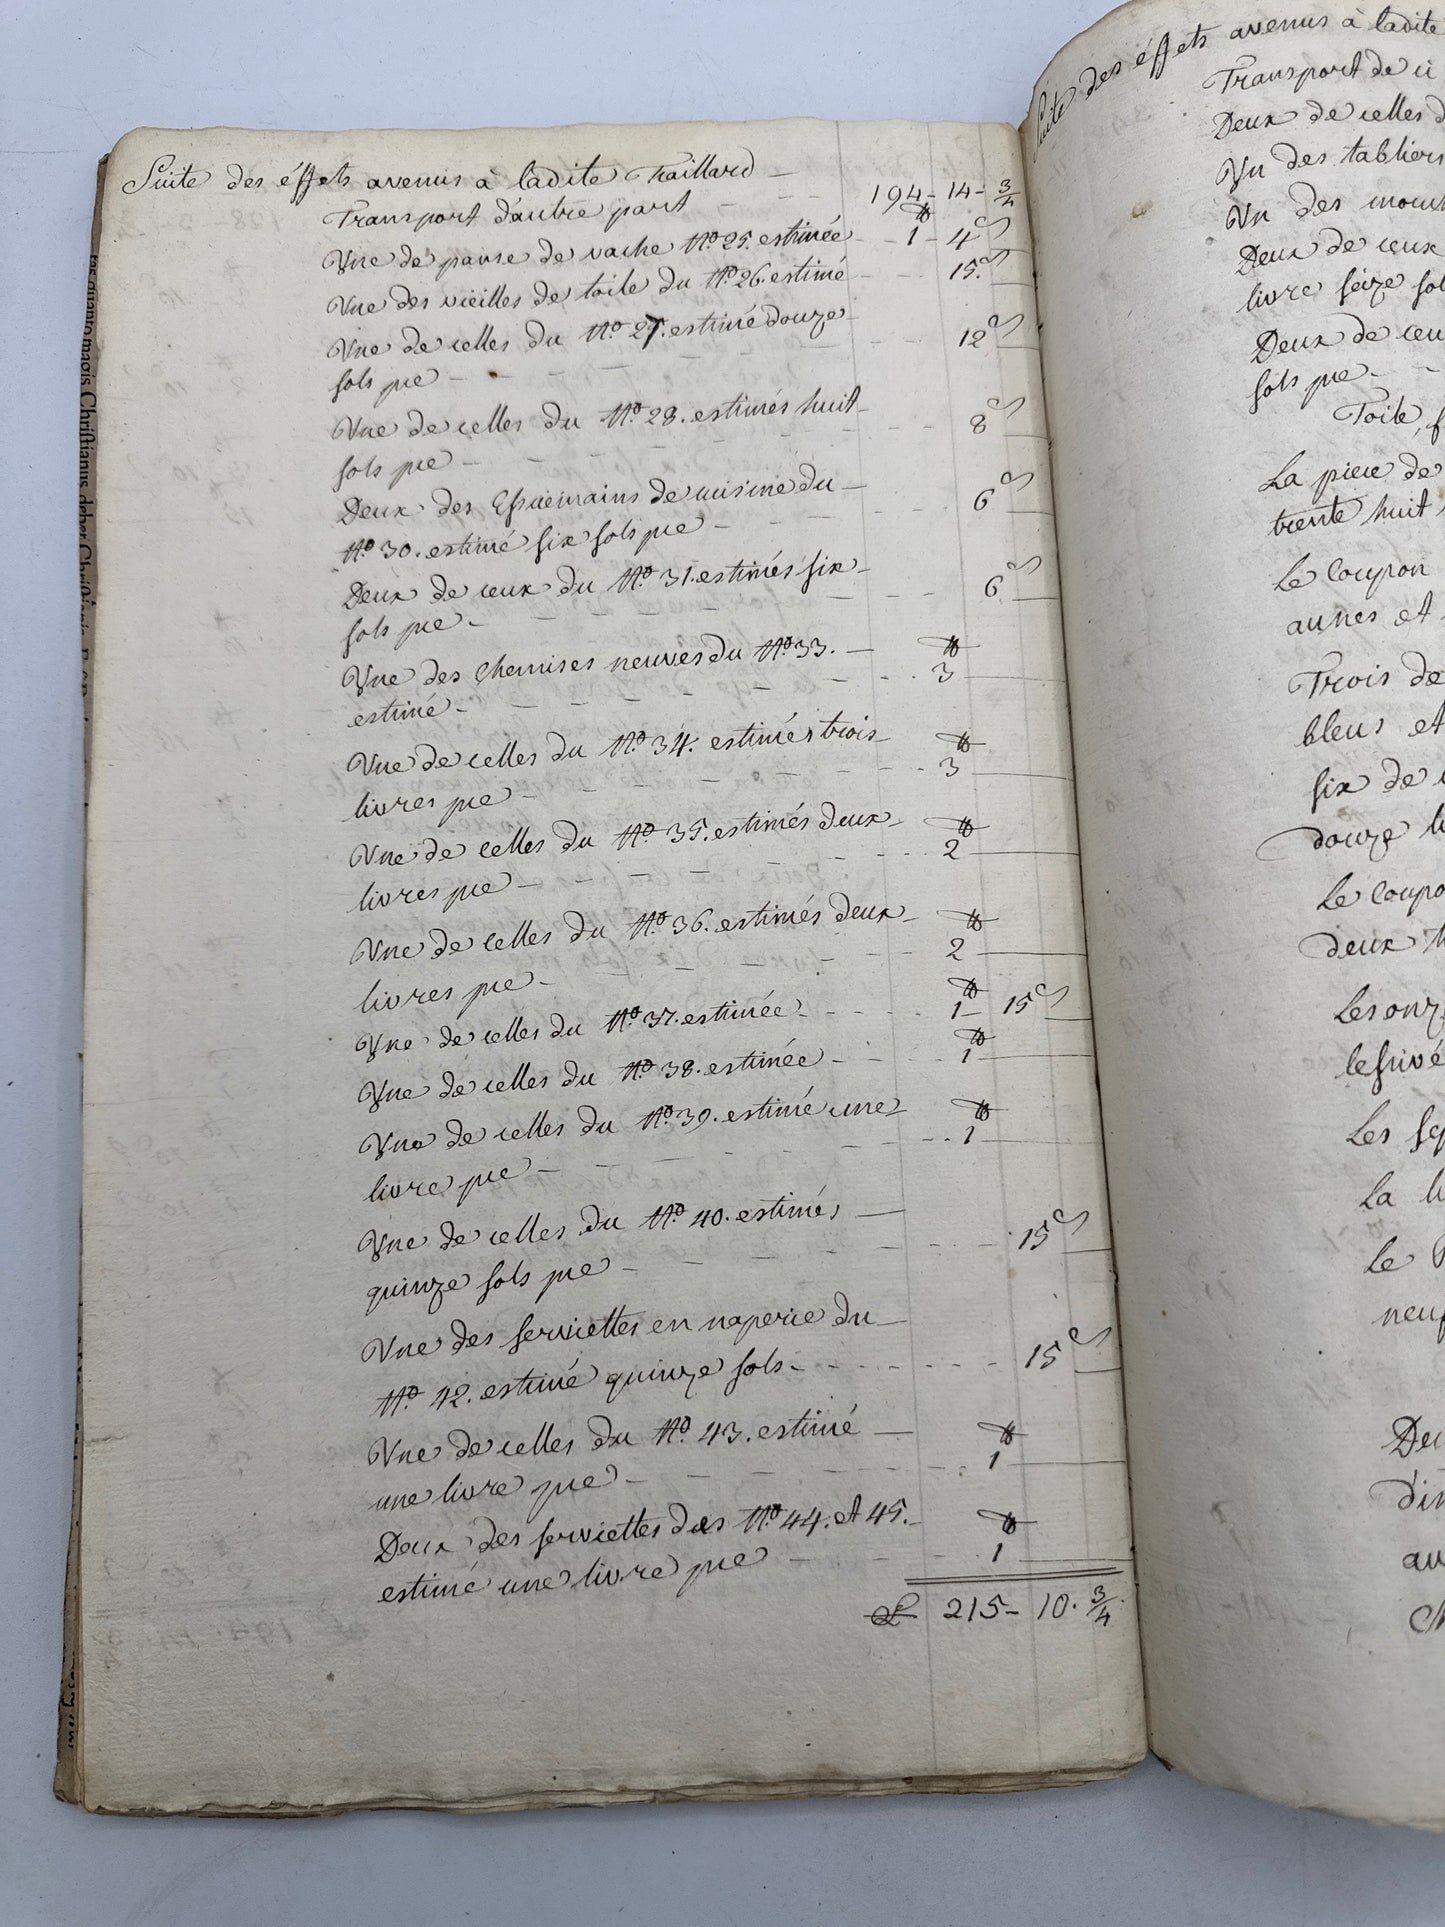 Suite des éffets avenus à ladite Taillard
Transport d'autre part 194 - 14 - 3/4
Vne de panse de vache No 25. estimée 1 - 4 s
Vne des vieilles de toile du No 26. estimé 15. s
Vne de celles du No 27. estimé douze
sols pce 12 s
Vne de celles du No 28. estimés huit
sols pce 8 s
Deux des Essuemains de cuisine du
No 30. estimé six sols pce 6 s
Deux de ceux du No 31. estimés six
sols pce 6 s
Vne des chemises neuves du No 33.
estimé 3
Vne de celles du No 34. estimés trois
livres pce 3
Vne de celles du No 35. estimés deux
livres pce 2
Vne de celles du No 36. estimés deux
livres pce 2
Vne de celles du No 37. estimée 1 - 15 s
Vne de celles du No 38. estimée 1
Vne de celles du No 39. estimé une
livre pce 1
Vne de celles du No 40. estimés
quinze sols pce 15 s
Vne des serviettes en naperie du
No 42. estimé quinze sols 15 s
Vne de celles du No 43. estimé
une livre pce 1
Deux des serviettes des No 44. et 45.
estimé une livre pce 1
L 215 - 10. 3/4
Suite des éffets avenus à ladite
Transport de ci
Deux de celles d
Vn des tabliers
Vn des mouch
Deux de ceux
livre seize sol
Deux de ceu
sols pce
Toile, f
La piece de
trente huit
Le Coupon
aunes et
Trois de
bleus et
six de
douze li
Le Coupo
deux
Les onz
lessivé
Les
La li
Le
neuf
De
d'in
au